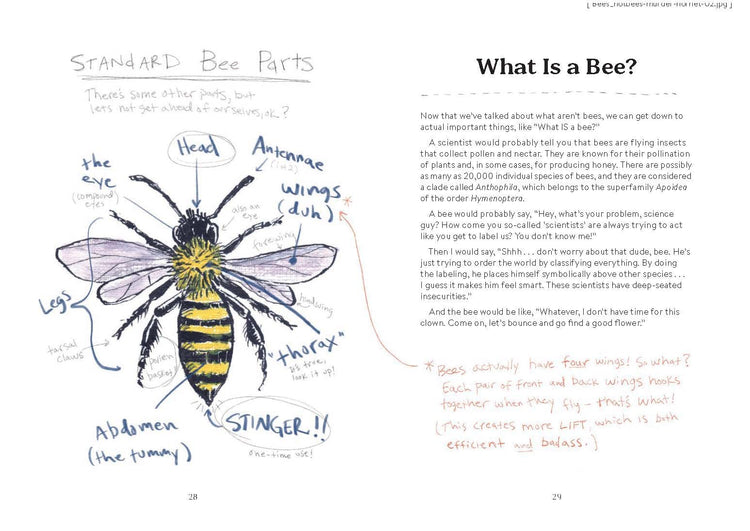 STANDARD Bee Parts
There's some other parts, but
lets not get ahead of ourselves, ok?
Head
Antennae
(1+2)
the
eye
(compound)
eyes
also an
eye
wings*
(duh)
forewing
hindwing
Legs
tarsal
claws
pollen
basket
"thorax"
it's true,
look it up!
Abdomen
(the tummy)
STINGER!!
one-time use!
28
What Is a Bee?
Now that we've talked about what aren't bees, we can get down to
actual important things, like "What IS a bee?"
A scientist would probably tell you that bees are flying insects
that collect pollen and nectar. They are known for their pollination
of plants and, in some cases, for producing honey. There are possibly
as many as 20,000 individual species of bees, and they are considered
a clade called Anthophila, which belongs to the superfamily Apoidea
of the order Hymenoptera.
A bee would probably say, "Hey, what's your problem, science
guy? How come you so-called 'scientists' are always trying to act
like you get to label us? You don't know me!"
Then I would say, "Shhh . . . don't worry about that dude, bee. He's
just trying to order the world by classifying everything. By doing
the labeling, he places himself symbolically above other species . . .
I guess it makes him feel smart. These scientists have deep-seated
insecurities."
And the bee would be like, "Whatever, I don't have time for this
clown. Come on, let's bounce and go find a good flower."
* Bees actually have four wings! So what?
Each pair of front and back wings hooks
together when they fly - that's what!
(This creates more LIFT, which is both
efficient and badass.)
29